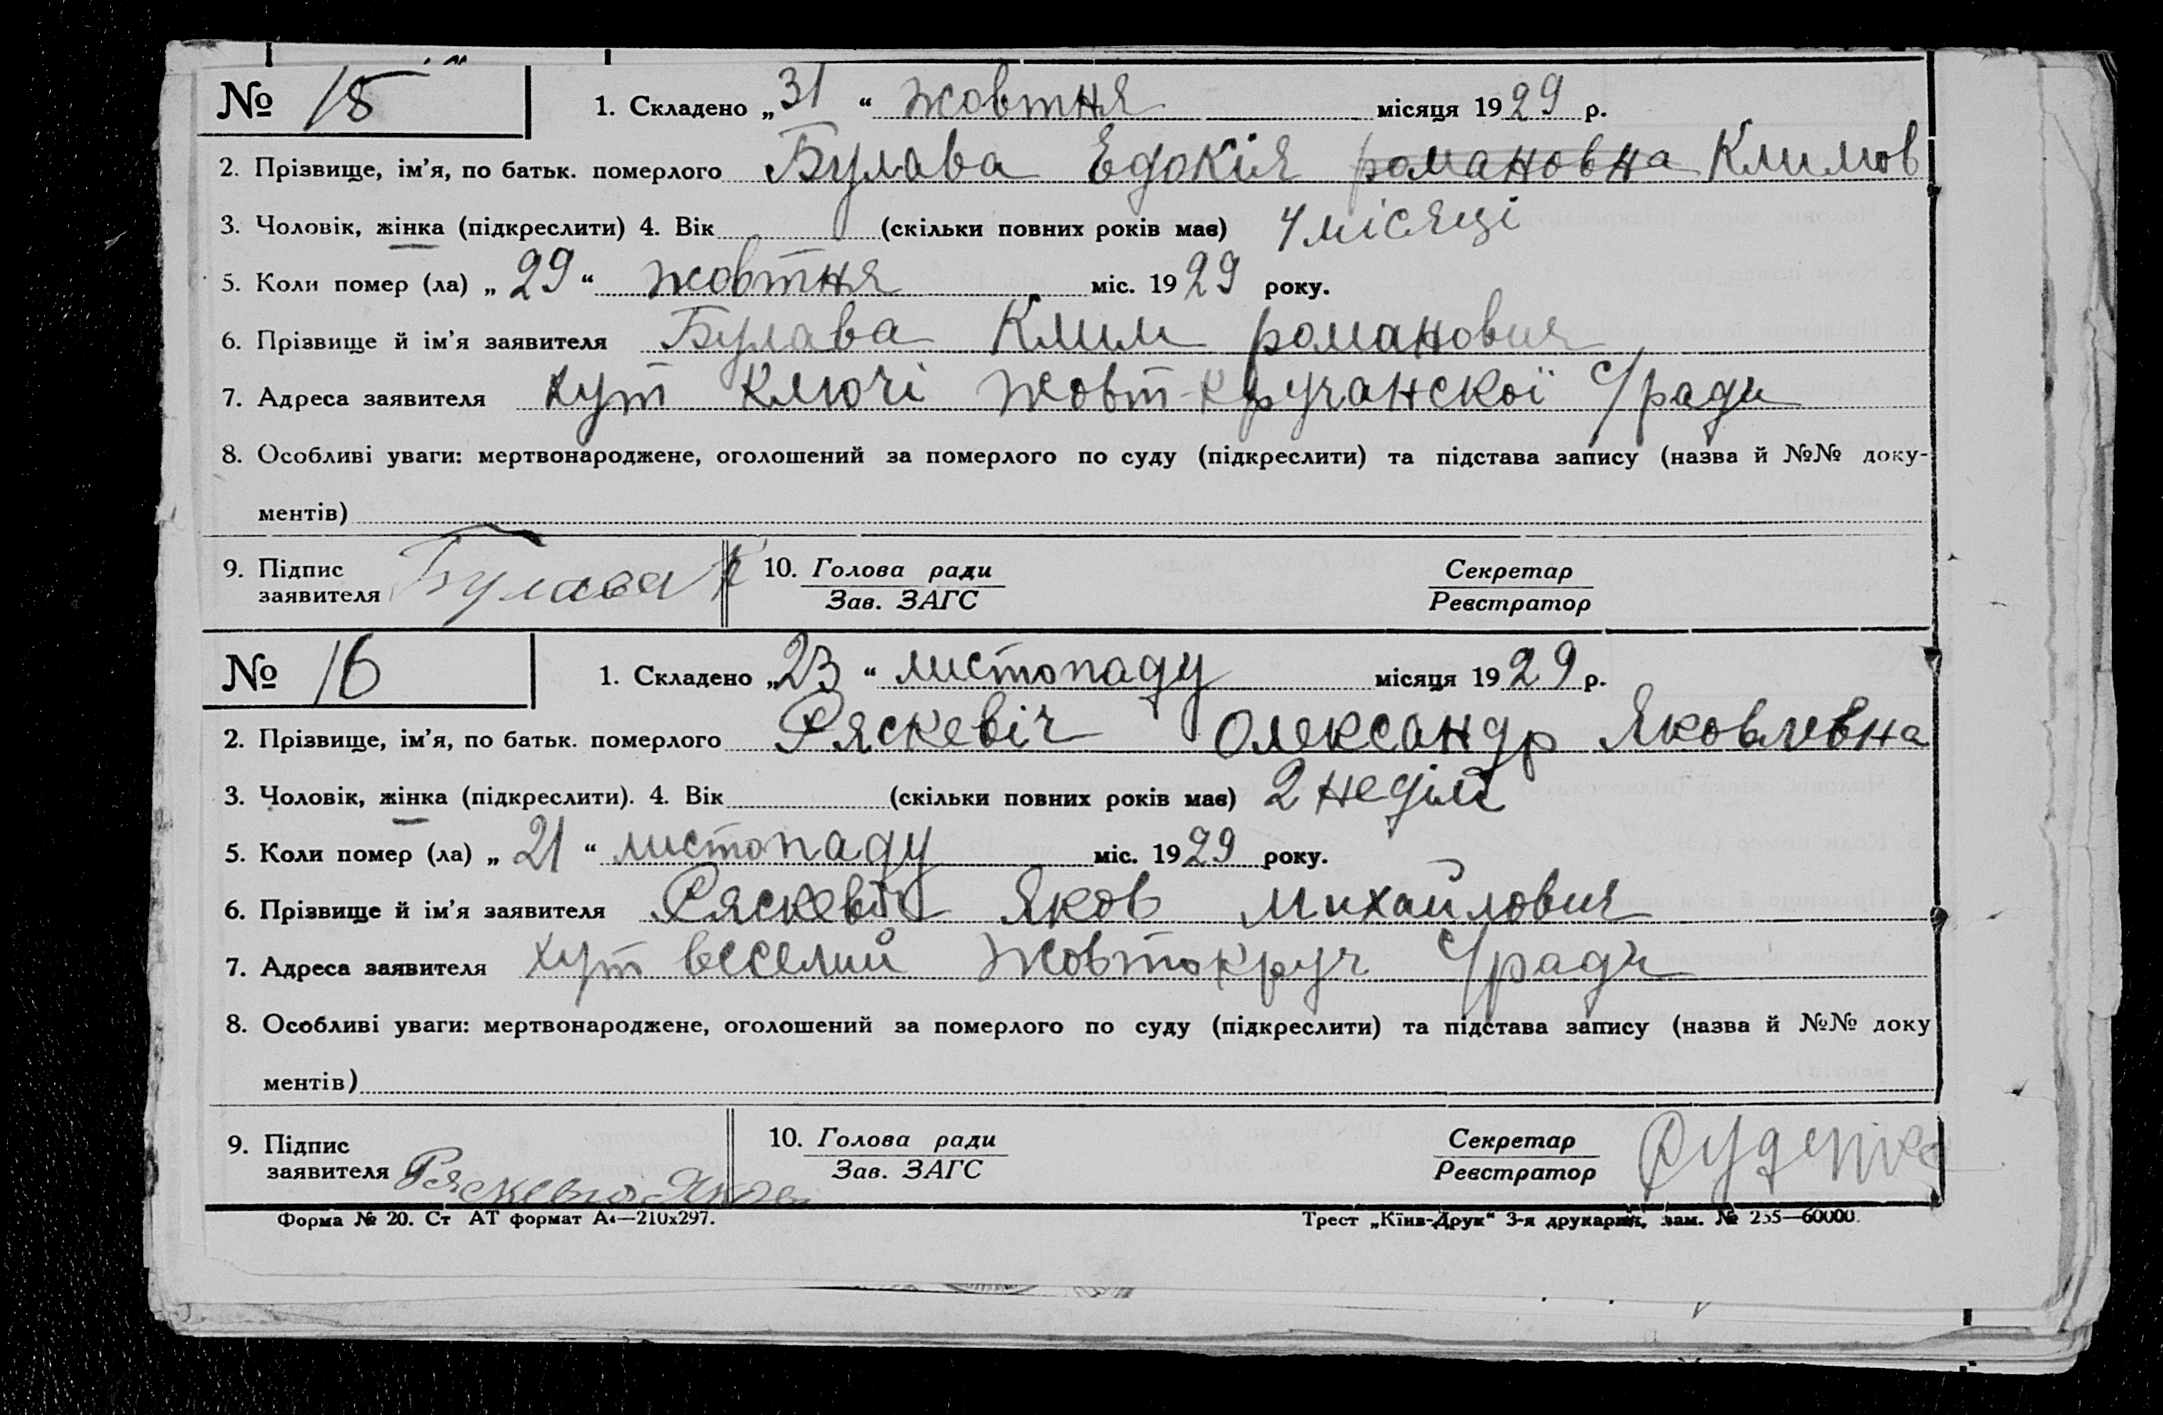 № 15 1. Складено „31“ жовтня місяця 1929 р.
2. Прізвище, ім’я, по батьк. померлого Булава Едокія романовна Климов
3. Чоловік, жінка (підкреслити) 4. Вік (скільки повних років має) 4 місяці
5. Коли помер (ла) „29“ жовтня міс. 1929 року.
6. Прізвище й ім’я заявителя Булава Клим романович
7. Адреса заявителя хут Ключі Жовт-Кручанскої с/ради
8. Особливі уваги: мертвонароджене, оголошений за померлого по суду (підкреслити) та підстава запису (назва й №№ доку-
ментів)
9. Підпис заявителя Булава К 10. Голова ради Зав. ЗАГС Секретар Реєстратор
№ 16 1. Складено „23“ листопаду місяця 1929 р.
2. Прізвище, ім’я, по батьк. померлого Ряскевіч Олександр Яковлевна
3. Чоловік, жінка (підкреслити). 4. Вік (скільки повних років має) 2 неділі
5. Коли помер (ла) „21“ листопаду міс. 1929 року.
6. Прізвище й ім’я заявителя Ряскевіч Яков Михайлович
7. Адреса заявителя хут веселий Жовтокруч с/ради
8. Особливі уваги: мертвонароджене, оголошений за померлого по суду (підкреслити) та підстава запису (назва й №№ доку
ментів)
9. Підпис заявителя 10. Голова ради Зав. ЗАГС Секретар Реєстратор Руденко
Форма № 20. Ст АТ формат А4—210х297. Трест „Київ-Друк“ 3-я друкарня, зам. № 255—60000.